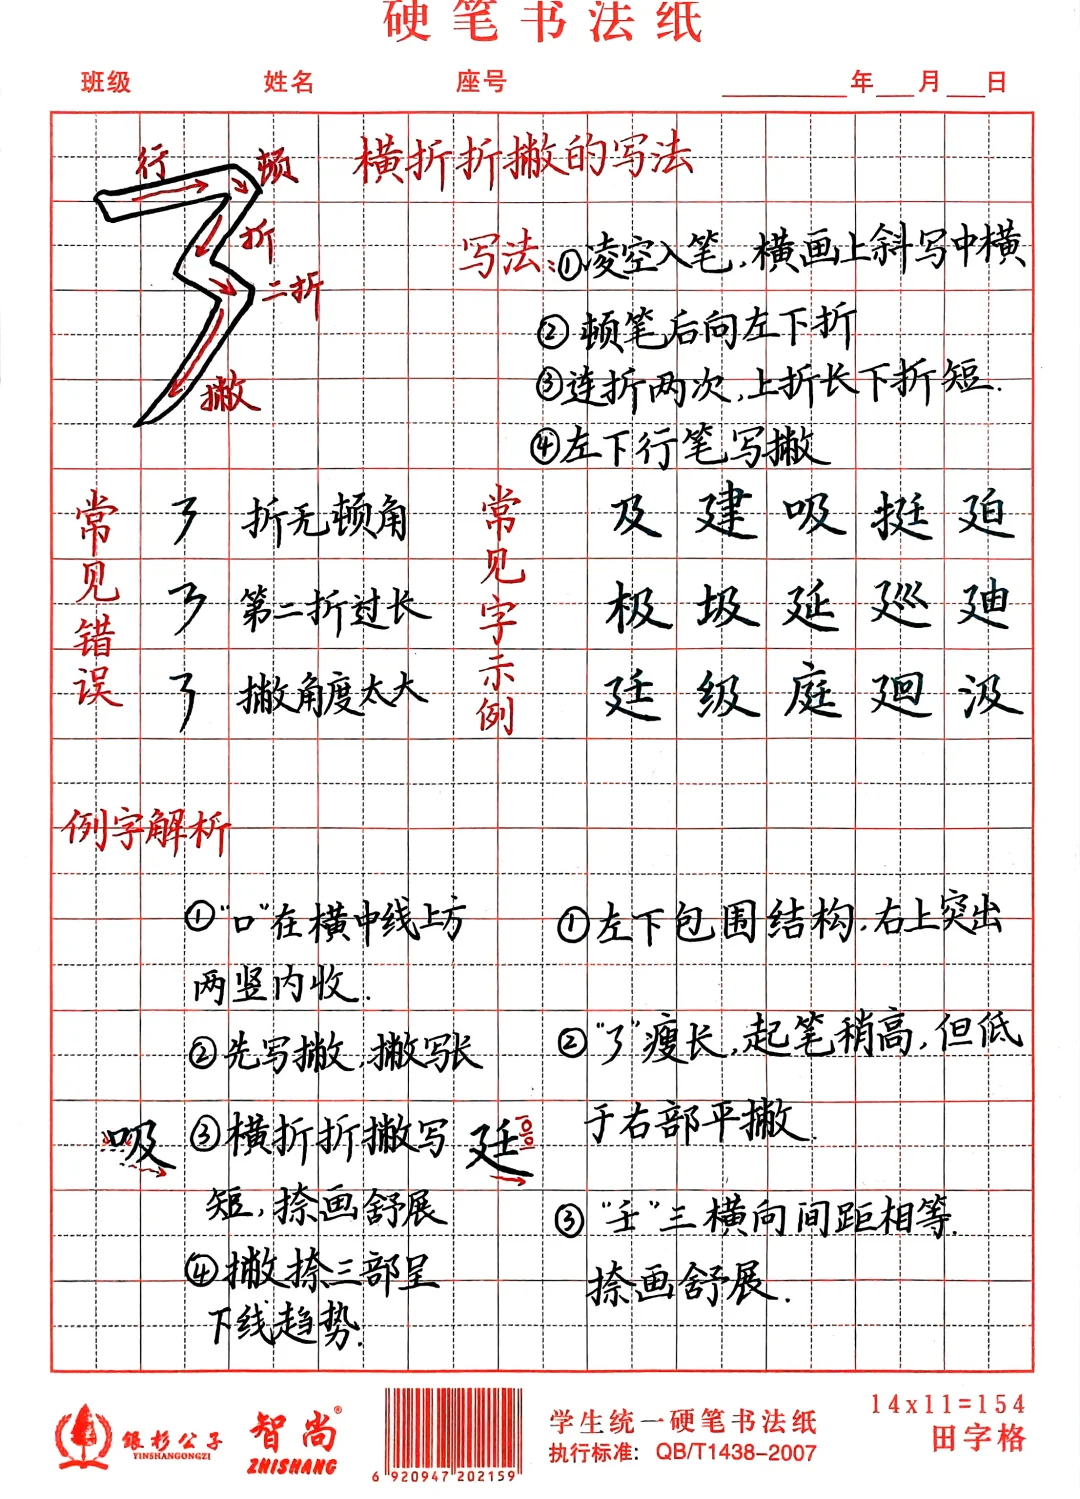 硬笔书法纸
班级 姓名 座号 年 月 日
横折折撇的写法
行 顿
折
二折
撇
写法:①凌空入笔,横画上斜写中横
②顿笔后向左下折
③连折两次,上折长下折短.
④左下行笔写撇
常见错误
折无顿角
第二折过长
撇角度太大
常见字示例
及 建 吸 挺 廹
极 圾 延 巡 廸
廷 级 庭 廻 汲
例字解析
吸
①“口”在横中线上方
两竖内收.
②先写撇,撇写长
③横折折撇写
短,捺画舒展
④撇捺三部呈
下线趋势.
廷
①左下包围结构,右上突出
②“㇋”瘦长,起笔稍高,但低
于右部平撇.
③“壬”三横向间距相等.
捺画舒展.
银杉公子
YINSHANGONGZI
智尚®
ZHISHANG
6 920947 202159
学生统一硬笔书法纸
执行标准: QB/T1438-2007
14x11=154
田字格